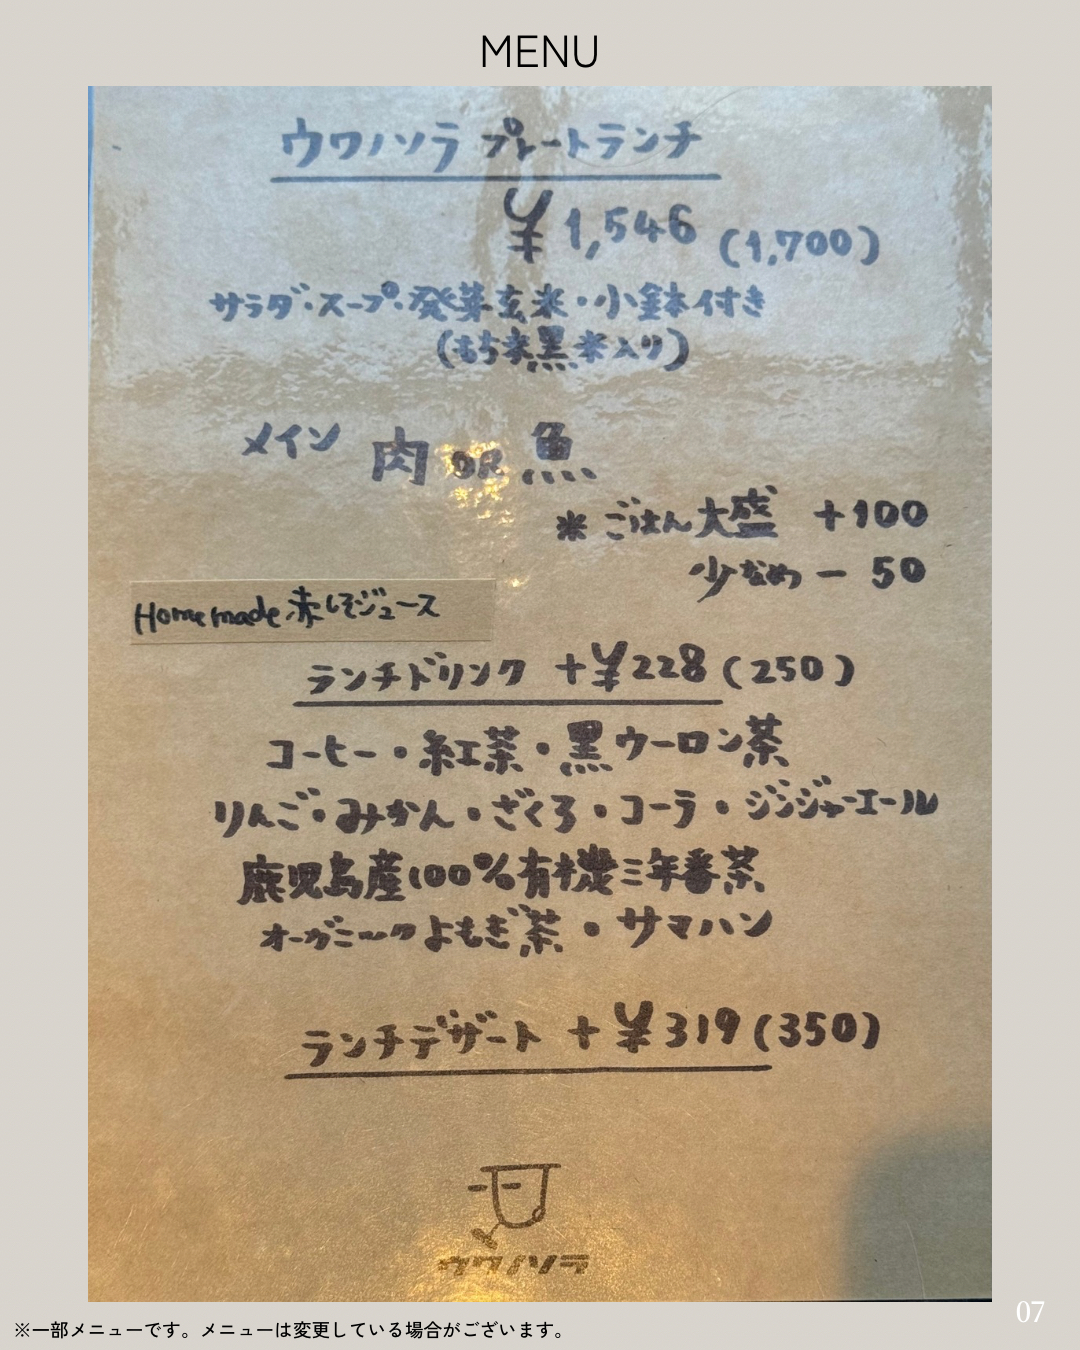 MENU
ウワノソラ プレートランチ
¥1,546 (1,700)
サラダ・スープ・発芽玄米・小鉢付き
(もち米黒米入り)
メイン 肉 OR 魚
※ごはん大盛 +100
少なめ - 50
Homemade 赤しそジュース
ランチドリンク +¥228 (250)
コーヒー・紅茶・黒ウーロン茶
りんご・みかん・ざくろ・コーラ・ジンジャーエール
鹿児島産100%有機三年番茶
オーガニックよもぎ茶・サマハン
ランチデザート +¥319 (350)
ウワノソラ
07
※一部メニューです。メニューは変更している場合がございます。